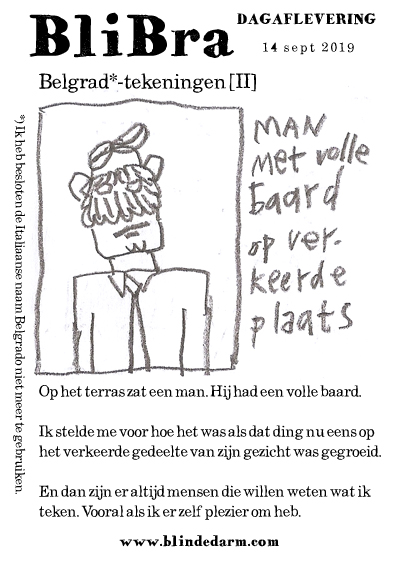 BliBra
DAGAFLEVERING
14 sept 2019
Belgrad*-tekeningen [II]
*) Ik heb besloten de Italiaanse naam Belgrado niet meer te gebruiken.
MAN
Met volle
baard
op ver-
keerde
plaats
Op het terras zat een man. Hij had een volle baard.
Ik stelde me voor hoe het was als dat ding nu eens op
het verkeerde gedeelte van zijn gezicht was gegroeid.
En dan zijn er altijd mensen die willen weten wat ik
teken. Vooral als ik er zelf plezier om heb.
www.blindedarm.com